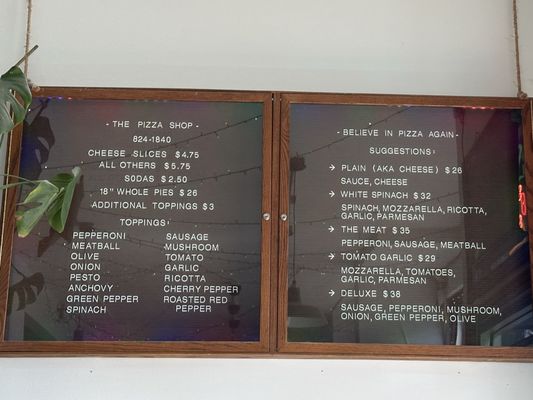 - THE PIZZA SHOP -
824-1840
CHEESE SLICES $4.75
ALL OTHERS $5.75
SODAS $2.50
18" WHOLE PIES $26
ADDITIONAL TOPPINGS $3
TOPPINGS:
PEPPERONI SAUSAGE
MEATBALL MUSHROOM
OLIVE TOMATO
ONION GARLIC
PESTO RICOTTA
ANCHOVY CHERRY PEPPER
GREEN PEPPER ROASTED RED
SPINACH PEPPER
- BELIEVE IN PIZZA AGAIN -
SUGGESTIONS:
→ PLAIN (AKA CHEESE) $26
SAUCE, CHEESE
→ WHITE SPINACH $32
SPINACH, MOZZARELLA, RICOTTA,
GARLIC, PARMESAN
→ THE MEAT $35
PEPPERONI, SAUSAGE, MEATBALL
→ TOMATO GARLIC $29
MOZZARELLA, TOMATOES,
GARLIC, PARMESAN
→ DELUXE $38
SAUSAGE, PEPPERONI, MUSHROOM,
ONION, GREEN PEPPER, OLIVE